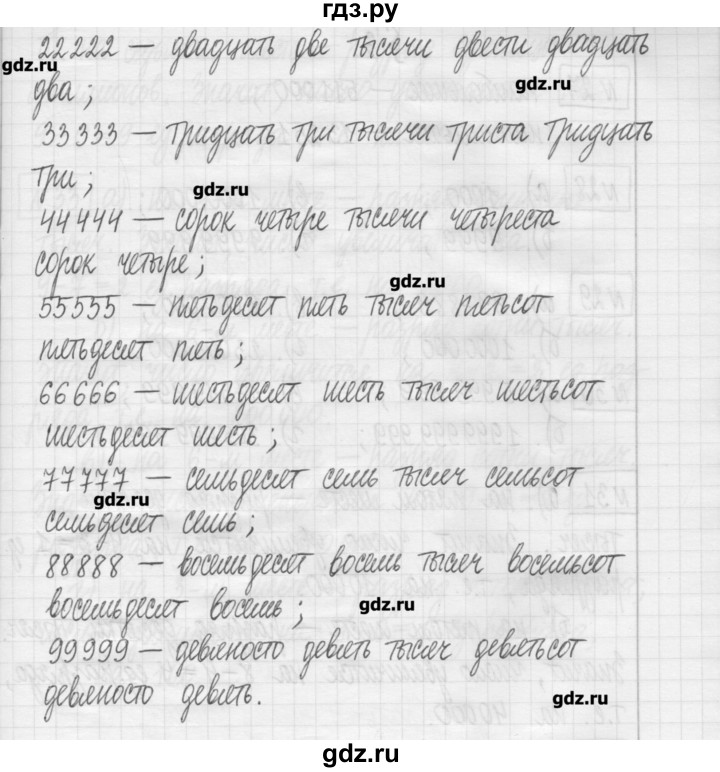 гдз.ру
22222 — двадцать две тысячи двести двадцать
gdz.ru
gdz.ru
два;
33333 — тридцать три тысячи триста тридцать
три;
gdz.ru
44444 — сорок четыре тысячи четыреста
сорок четыре;
gdz.ru
55555 — пятьдесят пять тысяч пятьсот
пятьдесят пять;
66666 — шестьдесят шесть тысяч шестьсот
шестьдесят шесть;
77777 — семьдесят семь тысяч семьсот
gdz.ru
семьдесят семь;
88888 — восемьдесят восемь тысяч восемьсот
восемьдесят восемь;
gdz.ru
99999 — девяносто девять тысяч девятьсот
девяносто девять.
gdz.ru
gdz.ru